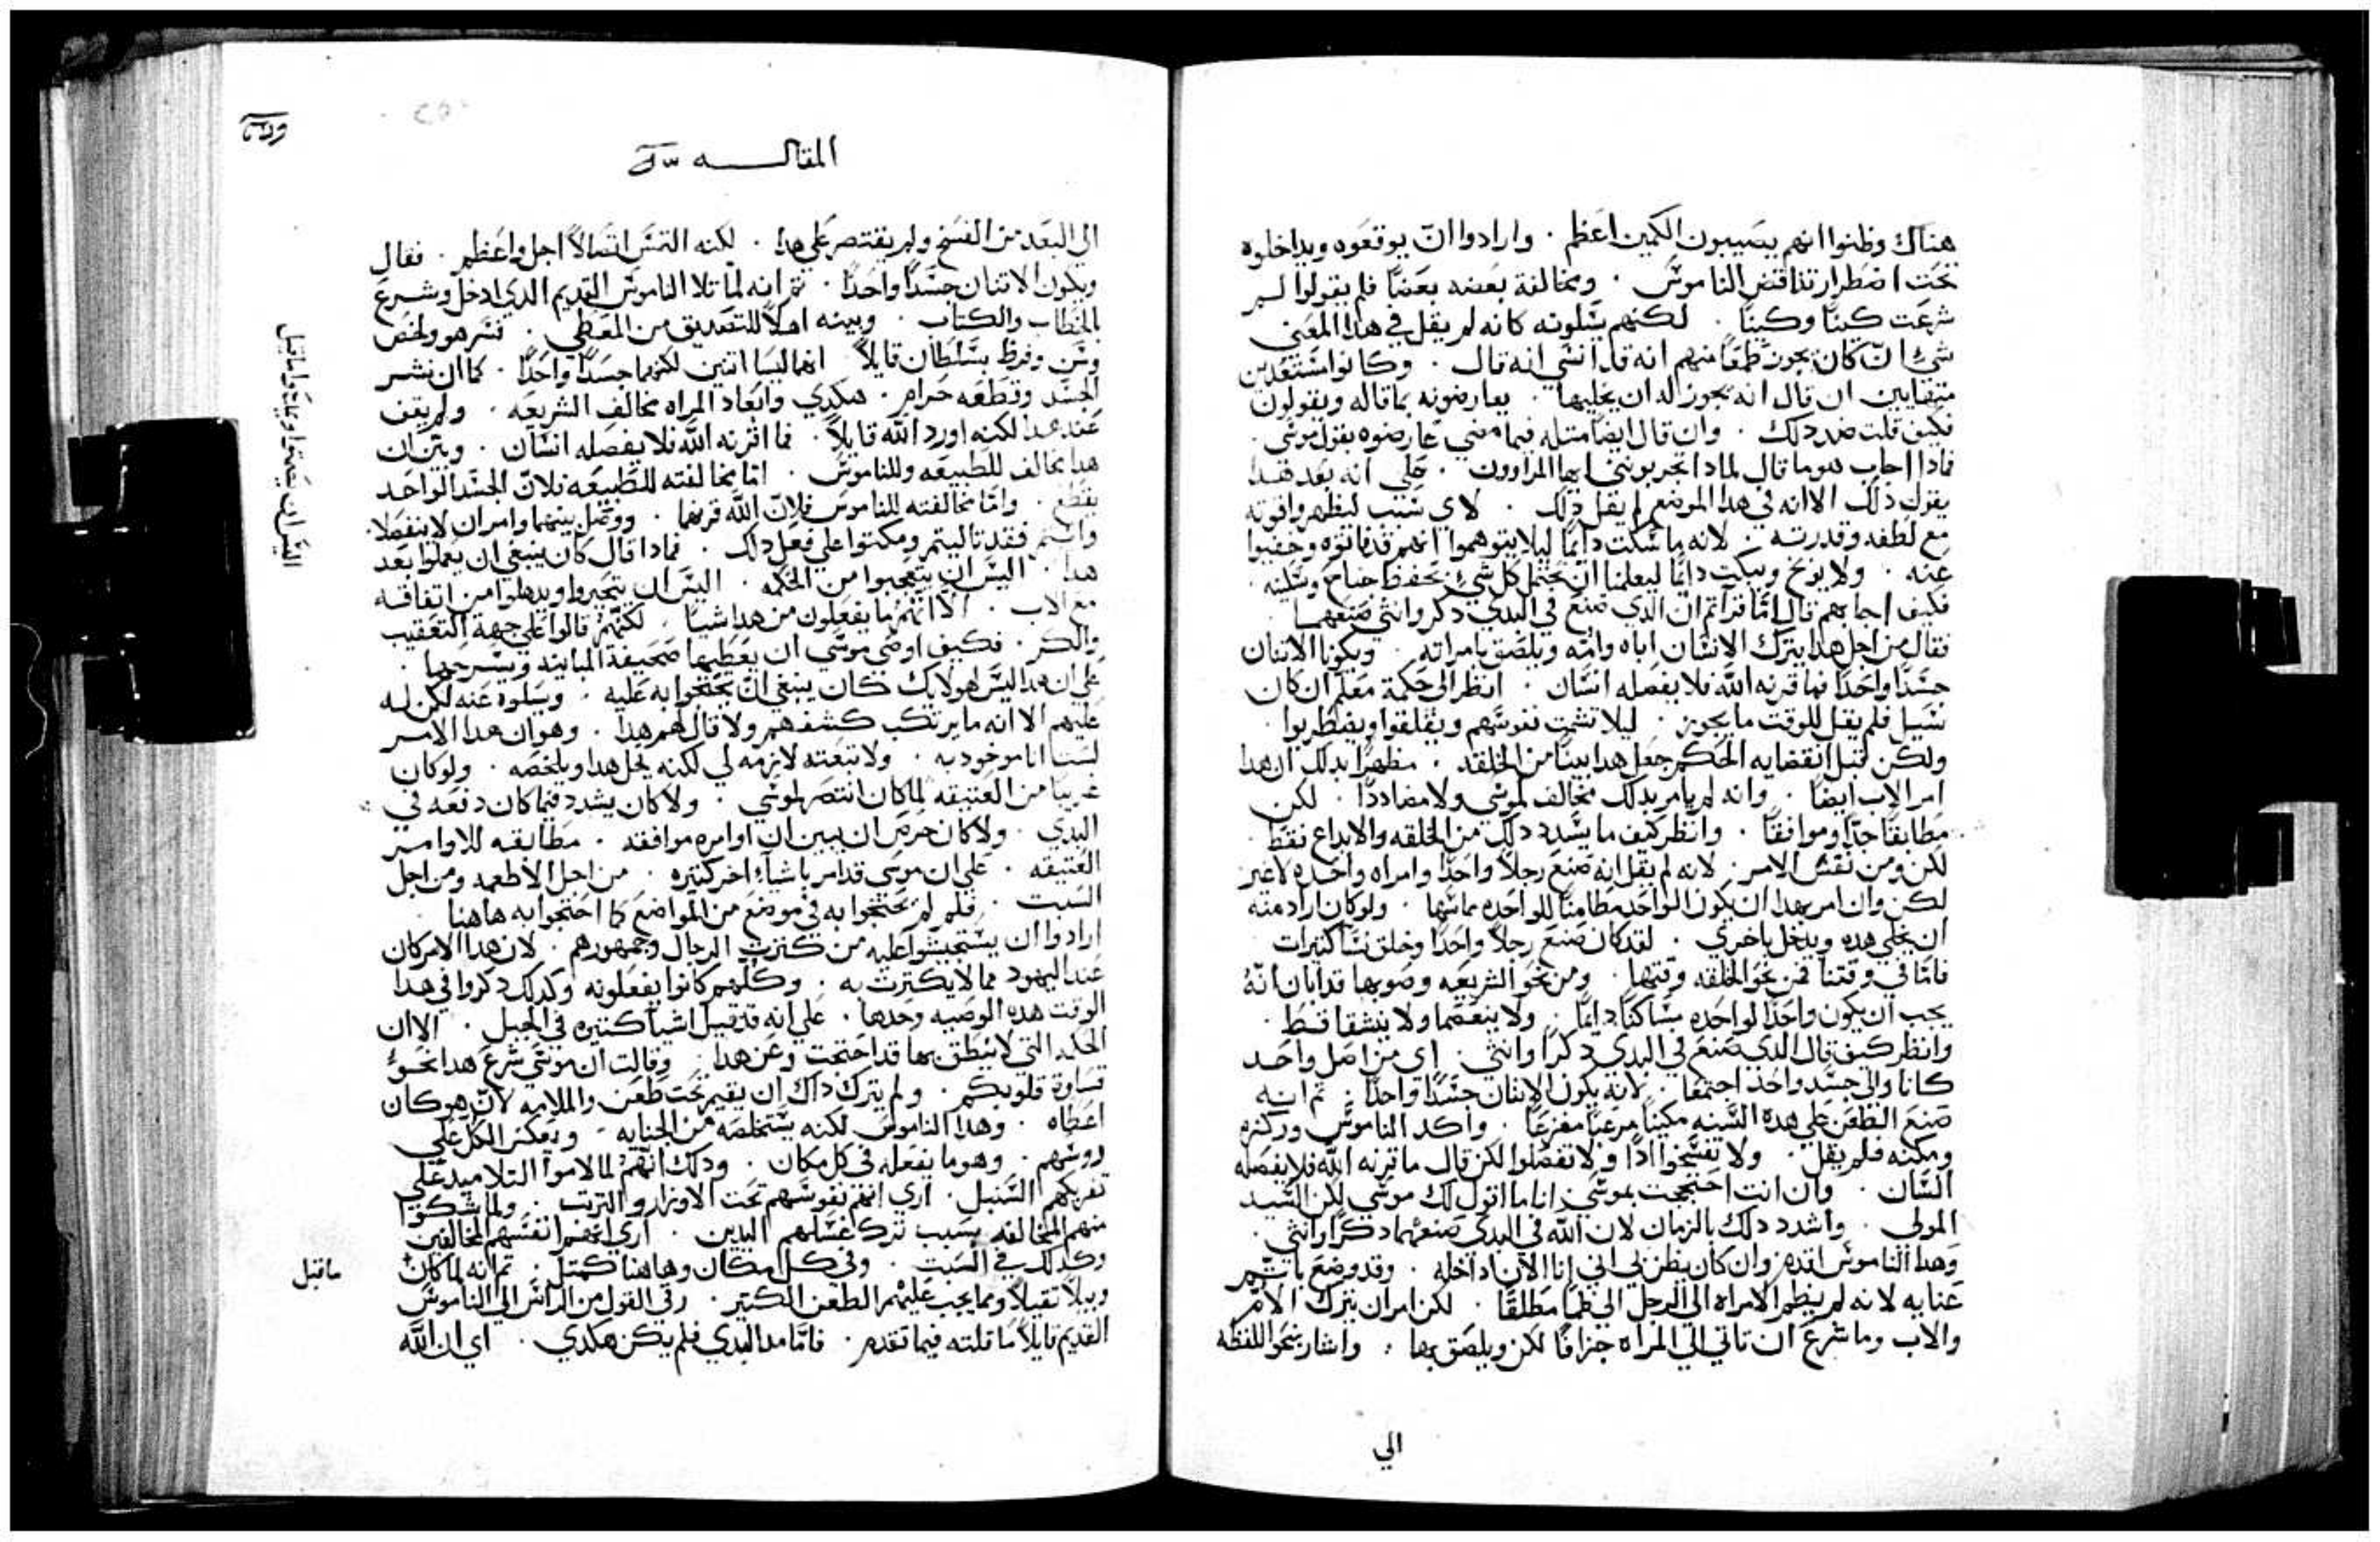 هناك وظنوا انهم يصيبون الكمين اعظم . وارادوا انّ يوقعوه ويداخلوه
تحت اضطرار تناقض الناموس . ومخالفة بعضه بعضًا فلم يقولوا لم
شرعت كيتَّا وكيتَّا . لكنهم يسَلونه كانه لم يقل في هدا المعَني
شيءً انّ كان يجوز طمعًا منهم انه قد انسَي انه قال . وكانوا مسَتعدين
ان قال انه يجوز له ان يخليها . يعارضونه بما قاله ويقولون
فكيف قلت ضد دلك . وان قال ايضًا متله فيما مضي عارضوه بقول موسَي .
فادا اجاب هوما قال لمادا تجربوننى ايها المراوون . علي انه بعَد هدا
يقول ذلك الا انه في هدا الموضع لم يقل دلك . لاي سَبب ليظهر وافوته
مع لطفه وقدرته . لانه ما سَكت دايمًا ليلا يتوهموا انهم قد فاتوه وخفيوا
عنه . ولا يوبخ ويبكت دايمًا ليعلمنا ان نحتمل كل شيءٍ
فكيف اجابهم قال امّا قراتم ان الدي صنع في البدي دكر وانثي صنعهما
فقال من اجل هدا يترك الانسَان اباه وامّه ويلصَق بامراته . ويكونا الاتنان
جسَدًا واحَدًا فما قرنه اللّه فلا يفصَله انسَان . انظر الي حكمة معلم ان كان
سَيل فلم يقل للوقت ما يجوز . ليلا تشمت نفوسَهم ويقلقوا ويضطربوا .
ولكن قبل انقضايه الحكم جعَل هدا بينًا من الخلقه . مظهرًا بدلك ان هدا
امر الاب ايضًا . وانه لم يامر بدلك مخالف لموسَي ولا مضاددًا . لكن
مطابقًا جدًا وموافقًا . وانظر كيف ما يشَدد دلك من الخلقه والابداع فقَط
لكن ومن نفسَ الامر . لانه لم يقل انه صَنع رجلاً واحَدًا وامراه واحَده لاغير
لكن وان امر بهدا ان يكون الواحَد للواحَده . ولو كان اراد منه
ان يخلي هده ويدخل باخري . لقد كان صَنع رجلاً واحَدًا وخلق نسَا كتيرات
فامّا في وقتنا فمن نحو الخلقه . ومن نحو الشريعَه وصوبها قد ابان انّهُ
يجب ان يكون واحَدًا لواحَده مسَاكنًا دايمًا . ولا ينفصَما ولا ينشقا قط .
وانظر كيف قال الدي صَنع في البدي دكرًا وانثي . اي من اصَل واحَد
كانا والي جسَد واحد اجتمعا . لانه يكون الاتنان جسَدًا واحدًا . تم انه
صَنع الطعَن علي هده السَنه مكينًا مرعبًا مفزعًا . واكد الناموسَ وركزه
ومكنه فلم يقل . ولا تفسَخوا ادًا ولا تفصَلوا لكن قال ما قرنه اللّه فلا يفصَله
انسَان . وان انت احتججت بموسَي انا ما اقول لك موسَي لكن السَيد
المولي . واشدد دلك بالزمان لان اللّه في البدي صَنعهما دكرًا وانثي .
وهدا الناموسَ اقدم وان كان يظن بي اني انا الان ادخله . وقد وضع باتم
عنايه لانه لم يضم الامراه الي الرجل ضمًّا مطلقًا . لكن امر ان يترك الام
والاب وما شرع ان تاتي الي المراه جزافًا لكن ويلصَق بها . واشار بنحو اللفظه
الي
المقاله
الي البعَد من الفسَخ ولم يقتصر علي هدا . لكنه التمسَ اتصَالاً اجل واعَظم . فقال
ويكون الاتنان جسَدًا واحَدًا . تم انه لما تلا الناموسَ القديم الدي ادخل وشرع
بالخطاب والكتاب . وبينه اهلاً للتصَديق من المعَطي . فسَر هو ولخص
وسَن وفرظ بسَلطان قايلاً انهما ليسَا اتنين لكنهما جسَدًا واحَدًا . كما ان نشر
الجسَد وقطعَه حَرام . هكدي وابعَاد المراه مخالف الشريعَه . ولم يقف
عند هدا لكنه اورد اللّه قايلاً . فما اقرنه اللّه فلا يفصَله انسَان . وبيّن ان
هدا مخالف للطبيعَه وللناموسَ . امّا مخالفته للطبيعَه فلانّ الجسَد الواحَد
يقطع . وامّا مخالفته للناموسَ فلانّ اللّه قرنهما . ووصَل بينهما وامر ان لا ينفصَلا .
وانتم فقد تاليتم ومكتوا علي فعَل دلك . فمادا قال كان ينبغي ان يعملوا بعَد
هدا . اليسَ ان يتعَجبوا من الحَكمه . اليسَ ان يتحَيروا ويدهلوا من اتفاقه
مع الاب . الا انّهم ما يفعَلون من هدا شيًا . لكنّهم قالوا علي جهة التعَقيب
والكر . فكيف اوصَي موسَي ان يعَطيها صَحيفة المباينه ويسَرحَها .
علي ان هدا ليسَ لهولايك كان ينبغي انّ يحَتجوا به عَليه . وسَلوه عَنه لكن له
عَليهم الا انه ما يرتكب كشفهم ولا قال لهم هدا . وهو ان هدا الامر
لسَت انا ماخود به . ولا تبعته لازمه لي لكنه يحَل هدا ويلخصَه . ولو كان
غريبًا من العتيقه لما كان انتصَر لموسَي . ولا كان يشدد فيما كان دفعَه في
البدي . ولا كان حَرصَ ان يبين ان اوامره موافقه . مطابقه للاوامر
العَتيقه . علي ان موسَي قد امر باشيآءَ اخر كتيره . من اجل الاطعمه ومن اجل
السَبت . فلم لم يحَتجوا به في موضع من المواضع كما احَتجوا به هاهنا
ارادوا ان يسَتجيشوا عَليه من كترت الرجال وجمهورهم . لان هدا الامر كان
عَند اليهود مما لا يكترت به . وكلهم كانوا يفعَلونه وكدلك دكروا في هدا
الوقت هده الوصَيه وحَدها . علي انه قد قيل اشيا كتيره في الجبل . الا ان
الحَكمه التي لا ينطق بها قد احَتجت وعَن هدا . وقالت ان موسَي شرع هدا نحَوُ
قسَاوة قلوبكم . ولم يترك داك ان يقيم تحَت طعَن والملامه لانّ هو كان
اعَطاه . وهدا الناموسَ لكنه يسَتخلصَه من الجنايه . ويعكسَ الكل علي
روسَهم . وهو ما يفعَله في كل مكان . ودلك انّهم لما لاموا التلاميد علي
تفريكهم السَنبل . اري انّهم نفوسَهم تحَت الاوزار والتربت . ولما شكوا
منهم المخالفه بسَبب ترك غسَلهم اليدين . اري انهم انفسَهم المخالفين
وكدلك في السَبت . وفي كل مكان وهاهنا كمتل . تم انه لما كان
وبيلاً تقيلاً ومما يجب عَليهم الطعَن الكتير . رقي القول من الراسَ الي الناموسَ
القديم قايلاً ما قلته فيما تقدم . فامّا مند البدي فلم يكن هكدي . اي ان اللّه
ما قبل